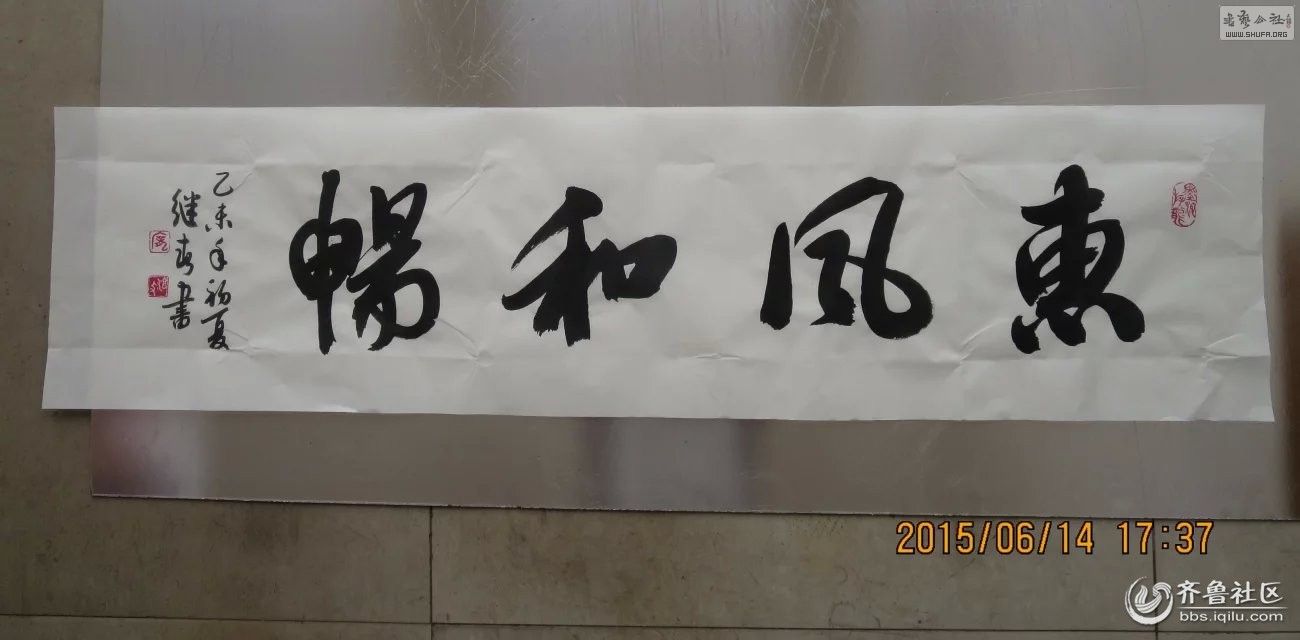 書藝公社
WWW.SHUFA.ORG
惠風和暢
乙未年初夏
继春書
2015/06/14 17:37
齐鲁社区
bbs.iqilu.com